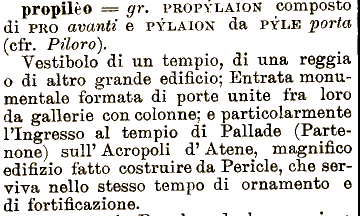 propilèo = gr. PROPÝLAION composto
di PRO avanti e PÝLAION da PÝLE porta
(cfr. Piloro).
Vestibolo di un tempio, di una reggia
o di altro grande edificio; Entrata monu-
mentale formata di porte unite fra loro
da gallerie con colonne; e particolarmente
l'Ingresso al tempio di Pallade (Parte-
none) sull' Acropoli d' Atene, magnifico
edifizio fatto costruire da Pericle, che ser-
viva nello stesso tempo di ornamento e
di fortificazione.